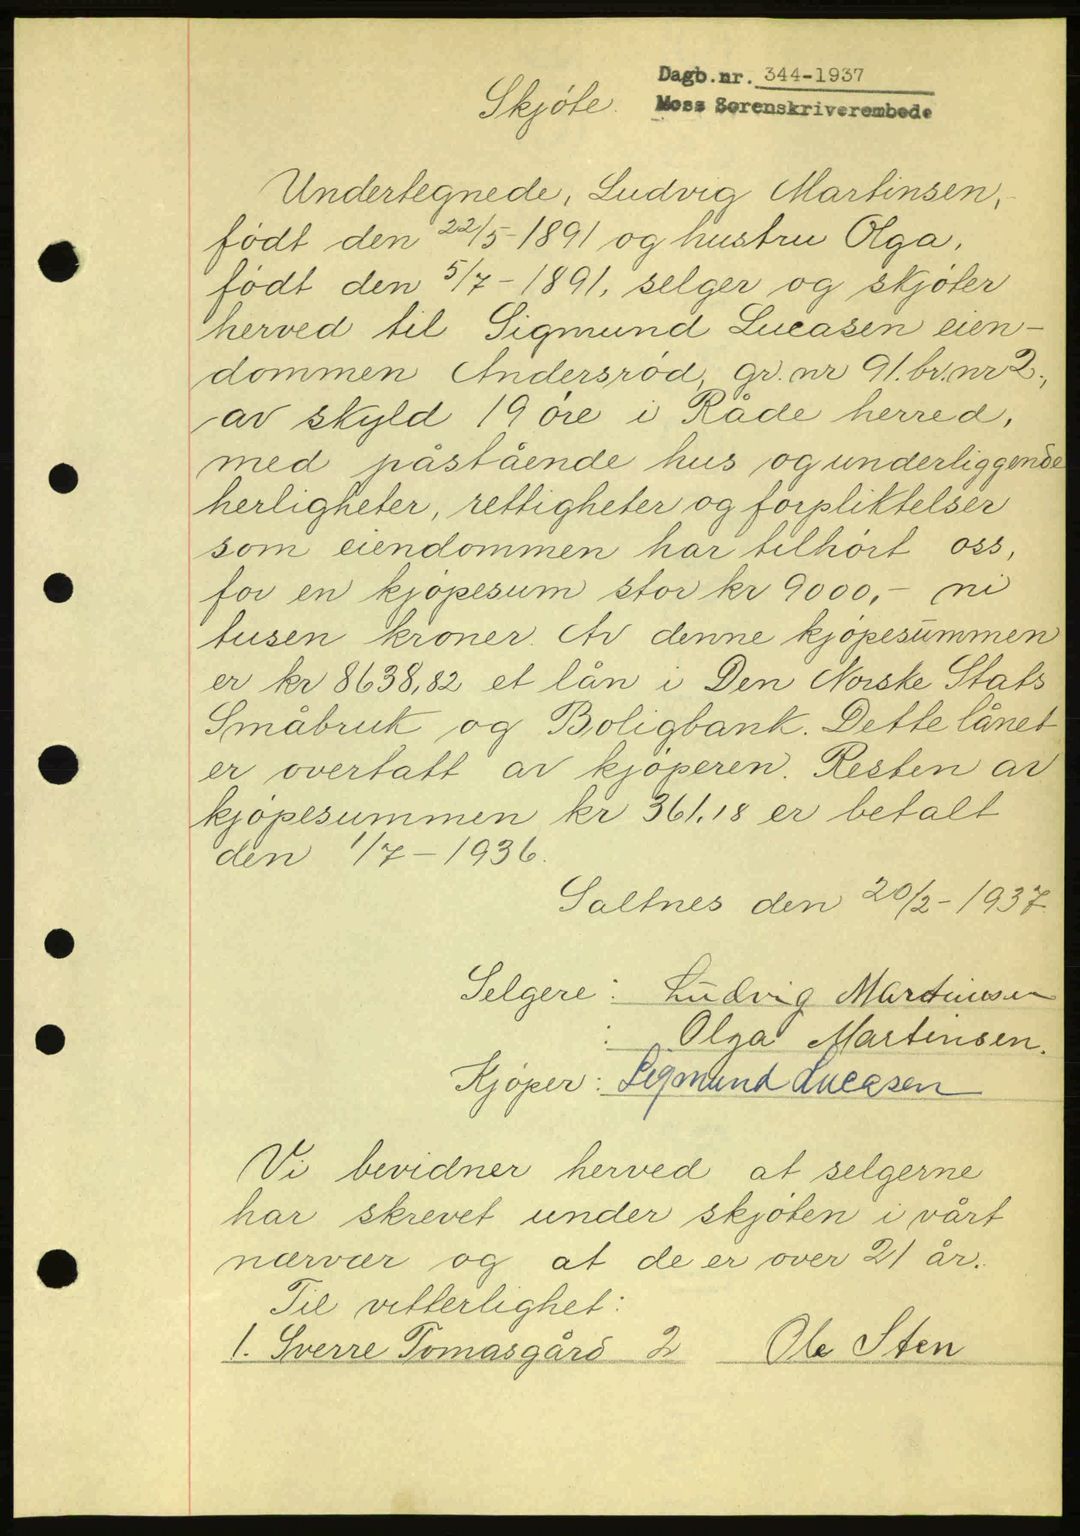 Dagb.nr. 344-1937
Moss Sorenskriverembede
Skjöte.
Undertegnede, Ludvig Martinsen,
födt den 22/5-1891 og hustru Olga,
födt den 5/7-1891, selger og skjöter
herved til Sigmund Lucasen eien-
dommen Andersröd, gr. nr 91. br. nr 2.,
av skyld 19 öre i Råde herred,
med påstående hus og underliggende
herligheter, rettigheter og forpliktelser
som eiendommen har tilhört oss,
for en kjöpesum stor kr 9000,- ni
tusen kroner. Av denne kjöpesummen
er kr 8638,82 et lån i Den Norske Stats
Småbruk og Boligbank. Dette lånet
er overtatt av kjöperen. Resten av
kjöpesummen kr 361.18 er betalt
den 1/7-1936.
Saltnes den 20/2-1937.
Selgere: Ludvig Martinsen
: Olga Martinsen.
Kjöper: Sigmund Lucasen
Vi bevidner herved at selgerne
har skrevet under skjöten i vårt
nærvær og at de er over 21 år.
Til vitterlighet:
1. Sverre Tomasgård 2 Ole Sten